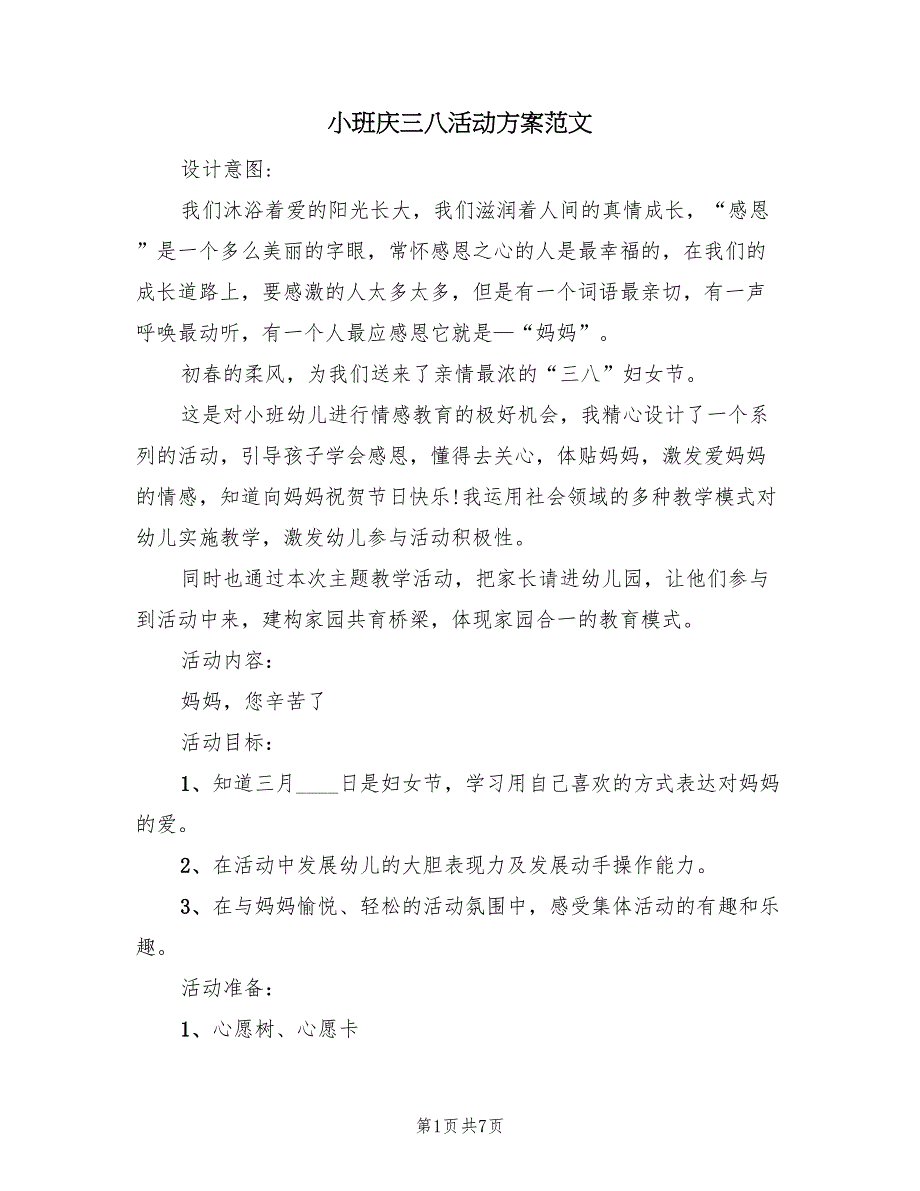 小班庆三八活动方案范文
设计意图:
我们沐浴着爱的阳光长大，我们滋润着人间的真情成长，“感恩
”是一个多么美丽的字眼，常怀感恩之心的人是最幸福的，在我们的
成长道路上，要感激的人太多太多，但是有一个词语最亲切，有一声
呼唤最动听，有一个人最应感恩它就是—“妈妈”。
初春的柔风，为我们送来了亲情最浓的“三八”妇女节。
这是对小班幼儿进行情感教育的极好机会，我精心设计了一个系
列的活动，引导孩子学会感恩，懂得去关心，体贴妈妈，激发爱妈妈
的情感，知道向妈妈祝贺节日快乐!我运用社会领域的多种教学模式对
幼儿实施教学，激发幼儿参与活动积极性。
同时也通过本次主题教学活动，把家长请进幼儿园，让他们参与
到活动中来，建构家园共育桥梁，体现家园合一的教育模式。
活动内容:
妈妈，您辛苦了
活动目标:
1、知道三月____日是妇女节，学习用自己喜欢的方式表达对妈妈
的爱。
2、在活动中发展幼儿的大胆表现力及发展动手操作能力。
3、在与妈妈愉悦、轻松的活动氛围中，感受集体活动的有趣和乐
趣。
活动准备:
1、心愿树、心愿卡
第1页共7页